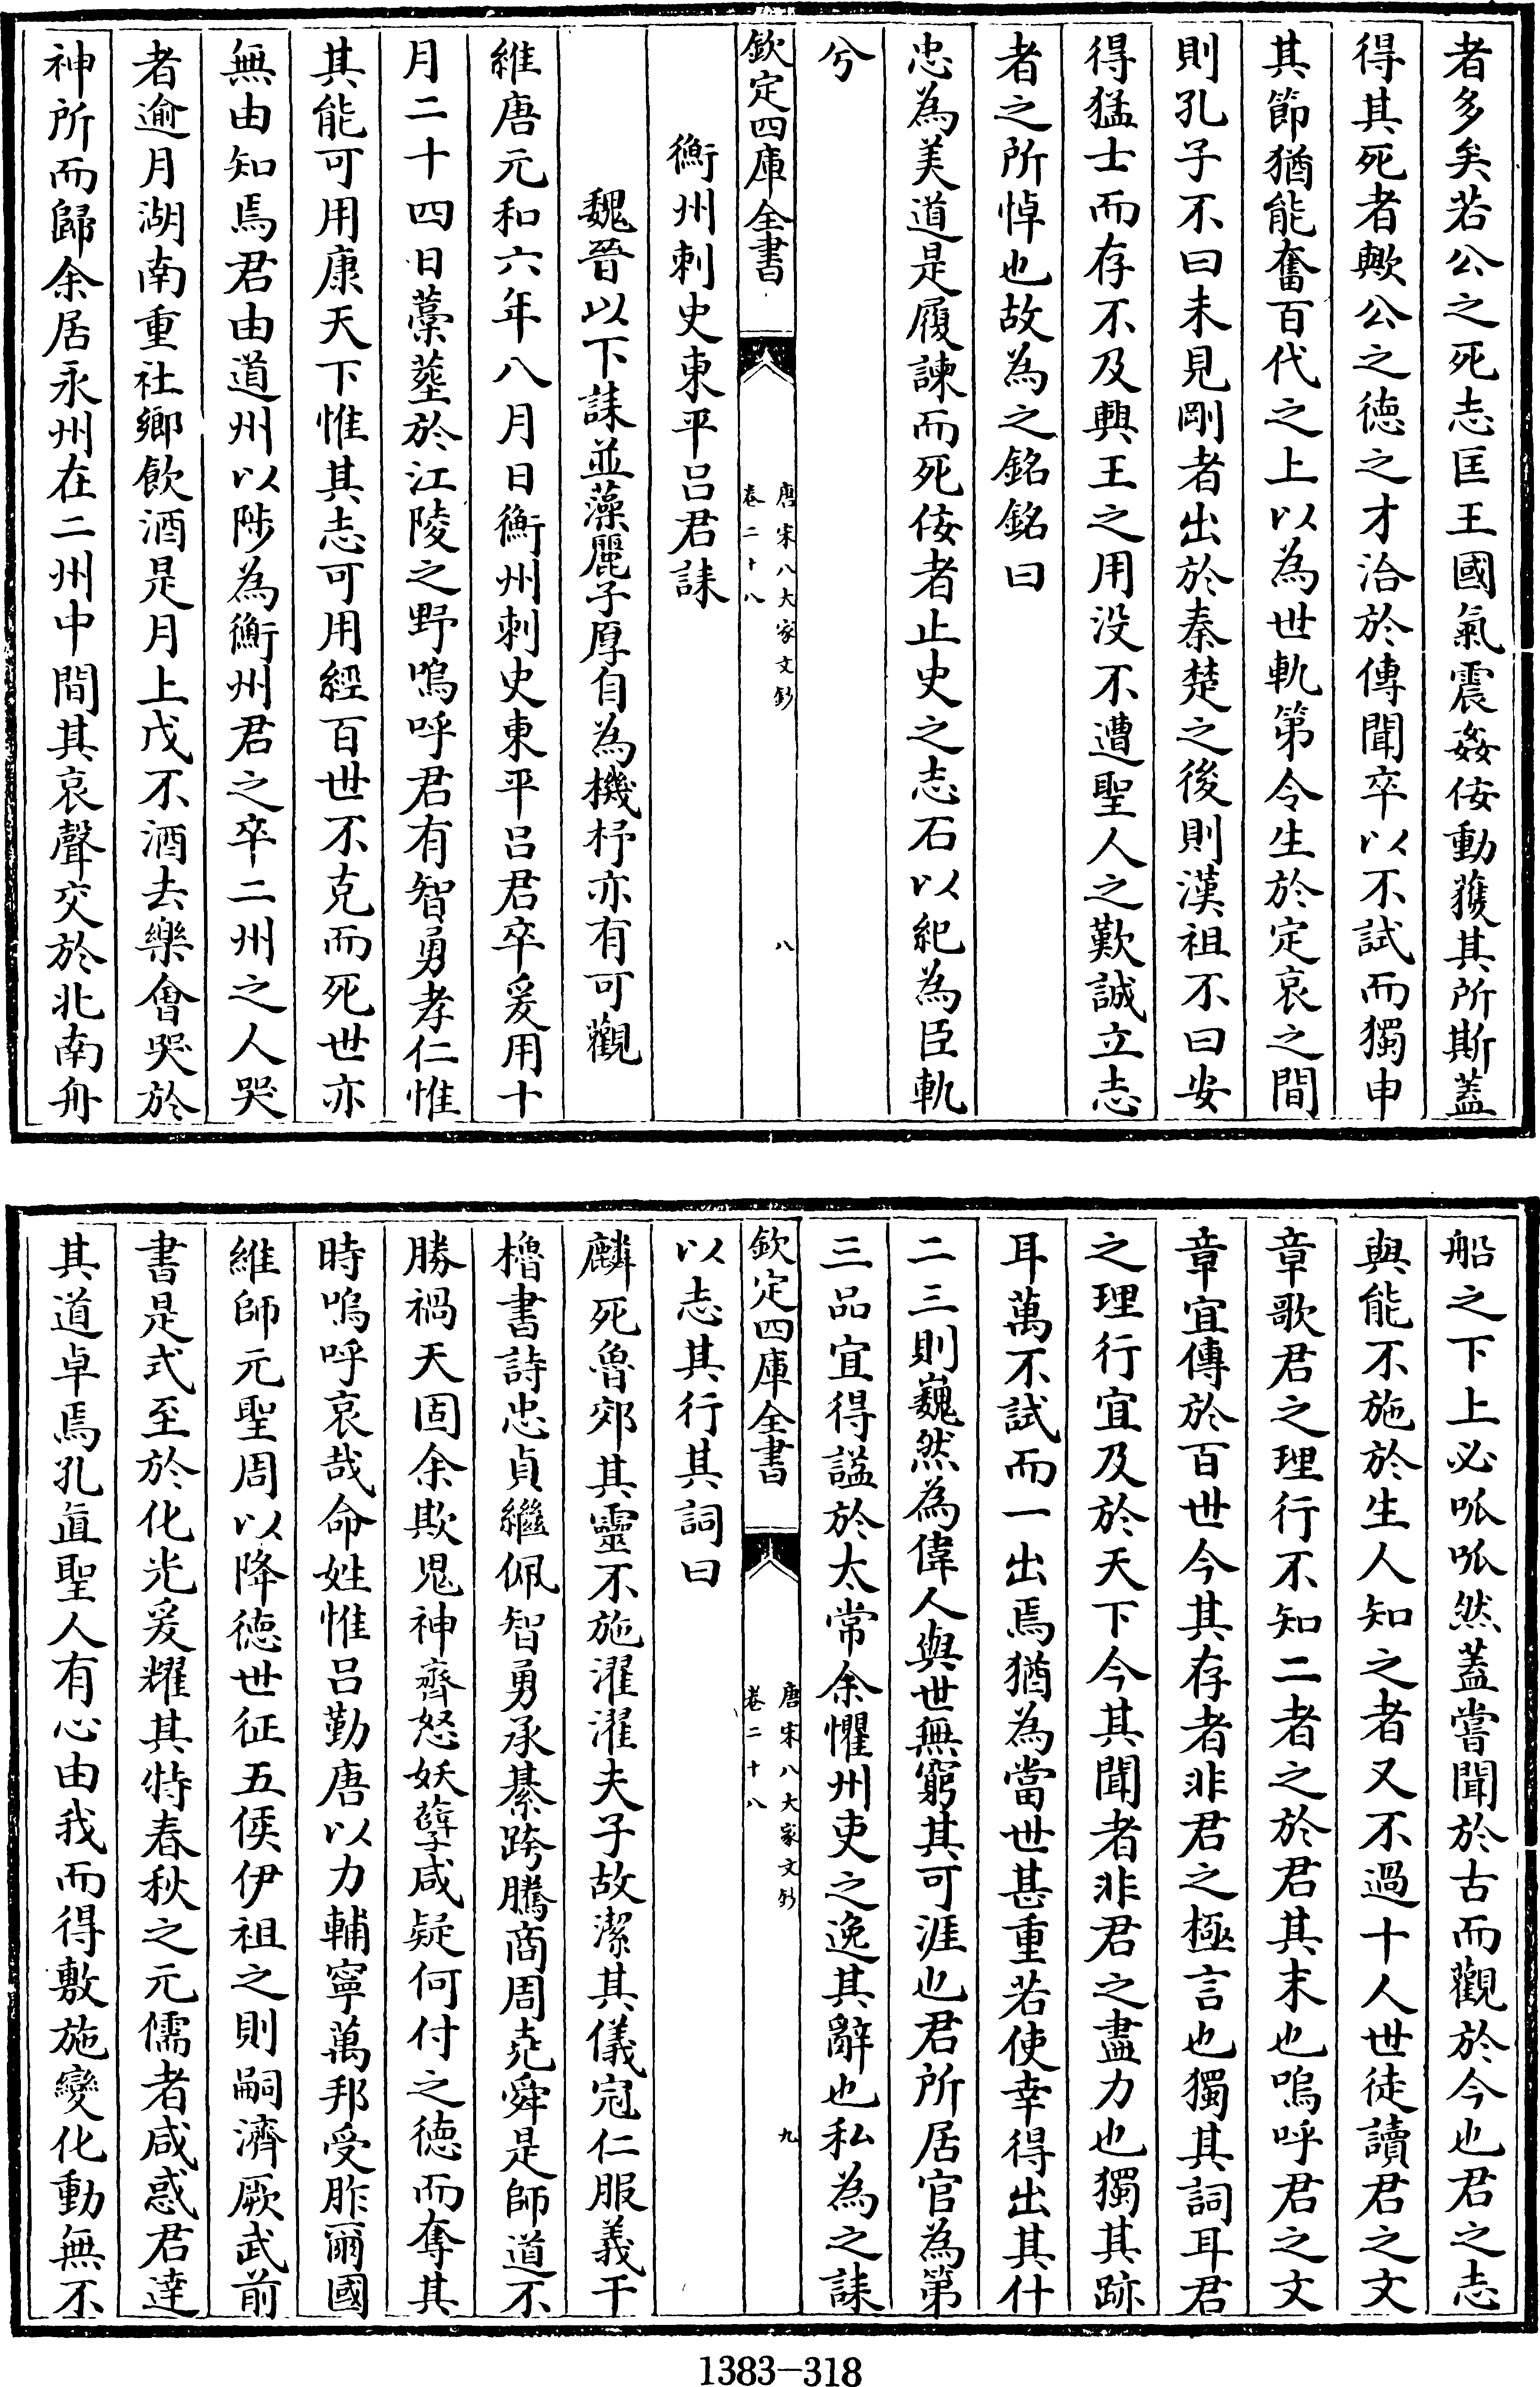 者多矣若公之死志匡王國氣震姦佞動獲其所斯蓋
得其死者歟公之德之才洽於傳聞卒以不試而獨申
其節猶能奮百代之上以為世軌第令生於定哀之間
則孔子不曰未見剛者出於秦楚之後則漢祖不曰安
得猛士而存不及興王之用没不遭聖人之歎誠立志
者之所悼也故為之銘銘曰
忠為美道是履諫而死佞者止史之志石以紀為臣軌
兮
欽定四庫全書
唐宋八大家文鈔
卷二十八
八
衡州刺史東平呂君誄
魏晉以下誄並藻麗子厚自為機杼亦有可觀
維唐元和六年八月日衡州刺史東平呂君卒爰用十
月二十四日藁葬於江陵之野嗚呼君有智勇孝仁惟
其能可用康天下惟其志可用經百世不克而死世亦
無由知焉君由道州以陟為衡州君之卒二州之人哭
者逾月湖南重社鄉飲酒是月上戊不酒去樂會哭於
神所而歸余居永州在二州中間其哀聲交於北南舟
船之下上必呱呱然蓋嘗聞於古而觀於今也君之志
與能不施於生人知之者又不過十人世徒讀君之文
章歌君之理行不知二者之於君其末也嗚呼君之文
章宜傳於百世今其存者非君之極言也獨其詞耳君
之理行宜及於天下今其聞者非君之盡力也獨其跡
耳萬不試而一出焉猶為當世甚重若使幸得出其什
二三則巍然為偉人與世無窮其可涯也君所居官為第
三品宜得謚於太常余懼州吏之逸其辭也私為之誄
欽定四庫全書
唐宋八大家文鈔
卷二十八
九
以志其行其詞曰
麟死魯郊其靈不施濯濯夫子故潔其儀冠仁服義干
櫓書詩忠貞繼佩智勇承綦跨騰商周堯舜是師道不
勝禍天固余欺鬼神齊怒妖孽咸疑何付之德而奪其
時嗚呼哀哉命姓惟呂勤唐以力輔寧萬邦受胙爾國
維師元聖周以降德世征五侯伊祖之則嗣濟厥武前
書是式至於化光爰耀其特春秋之元儒者咸惑君達
其道卓焉孔直聖人有心由我而得敷施變化動無不
1383-318